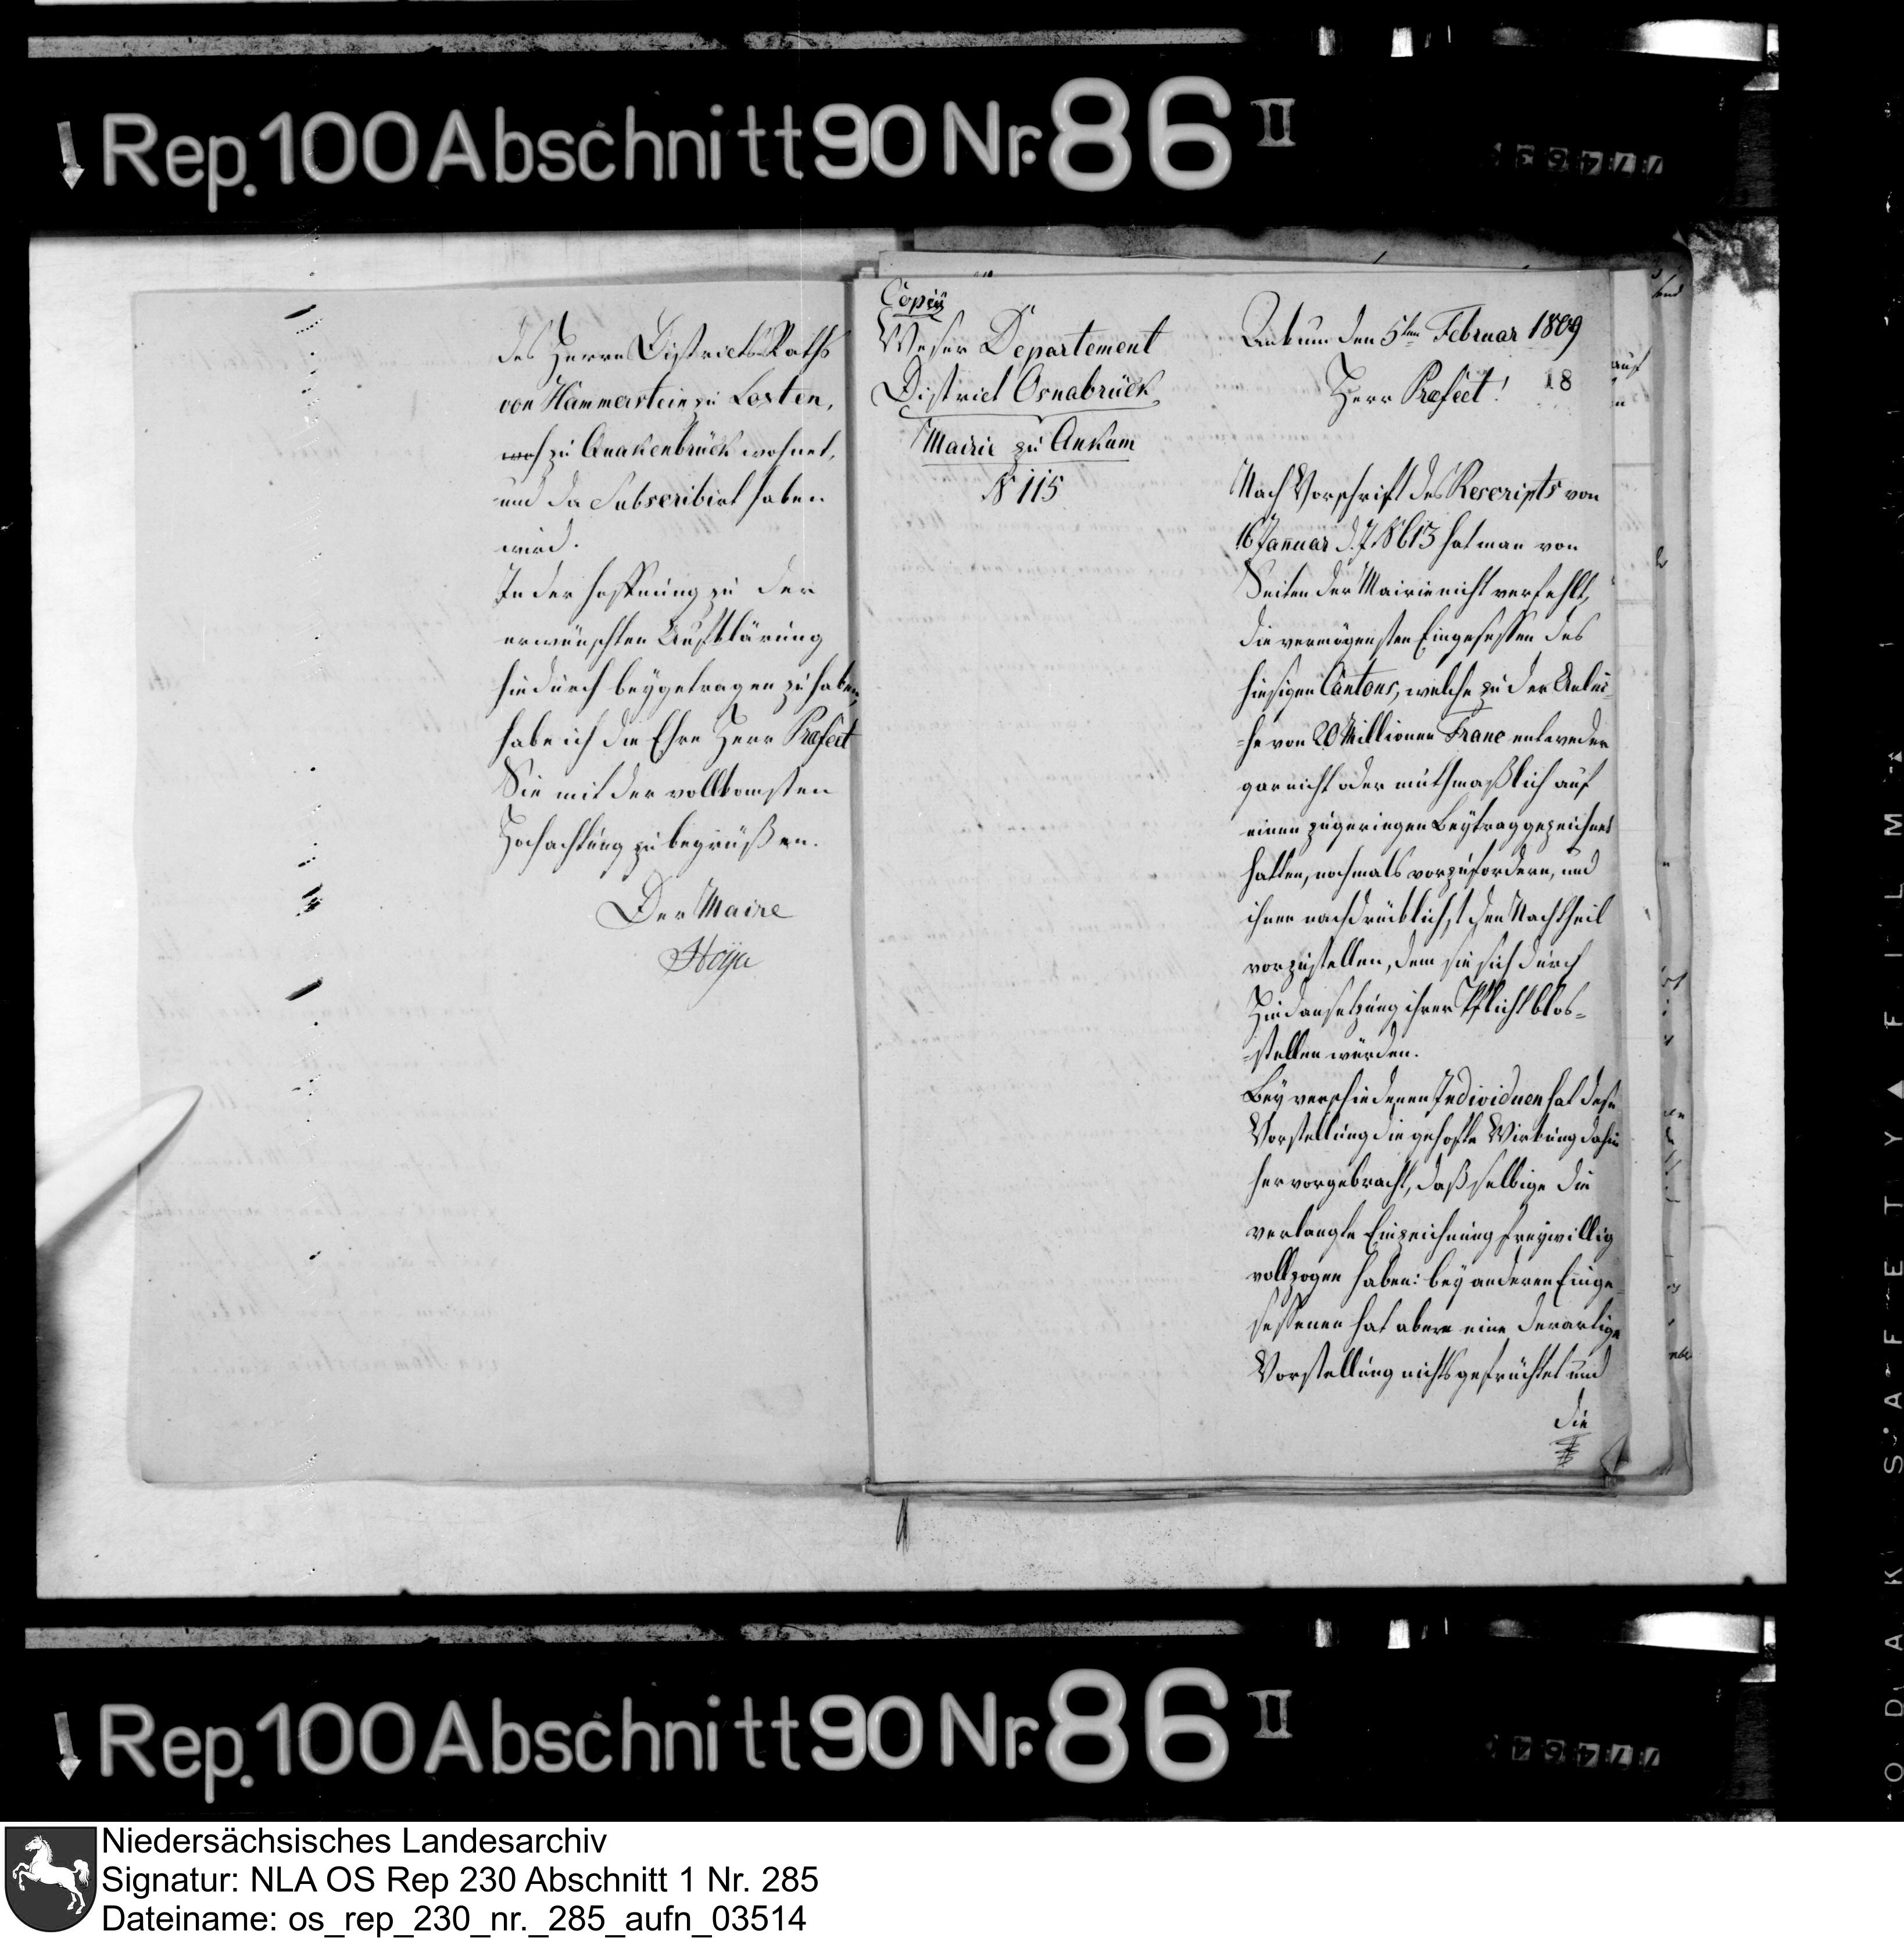 Rep. 100 Abschnitt 90 Nr. 86 II
des Herrn Districts Raths
von Hammerstein zu Loxten,
zu Quakenbrück wohnet,
und da Subscribirt haben
wird.
In der Hoffnung zu der
erwünschten Aufklärung
hiedurch beygetragen zu haben,
habe ich die Ehre Herr Præfect
Sie mit der vollkomsten
Hochachtung zu begrüßen.
Der Maire
Hoya
Weser Departement
District Osnabrück
Mairie zu Ankum
N 115
Ankum den 5ten Februar 1809
Herr Præfect!
18
Nach Vorschrift des Rescripts von
16 Januar d. J. N 613 hat man von
Seiten der Mairie nicht verfehlt,
die vermögensten Eingesessen des
hiesigen Cantons, welche zu der Anlei-
=he von 20 Millionen Franc entweder
gar nicht oder muthmaßlich auf
einen zu geringen Beytrag gezeichnet
hatten, nochmals vorzufordern, und
ihnen nachdrücklichst den Nachtheil
vorzustellen, dem sie sich durch
Hindansetzung ihrer Pflicht blos=
=stellen würden.
Bey verschiedenen Individuen hat diese
Vorstellung die gehofte Wirkung dahin
hervorgebracht, daß selbige die
verlangte Einzeichnung freywillig
vollzogen haben: bey anderen Einge-
sessenen hat aber eine derartige
Vorstellung nichts gefrüchtet und
die
Rep. 100 Abschnitt 90 Nr. 86 II
KODAK SAFETY FILM
Niedersächsisches Landesarchiv
Signatur: NLA OS Rep 230 Abschnitt 1 Nr. 285
Dateiname: os_rep_230_nr._285_aufn_03514